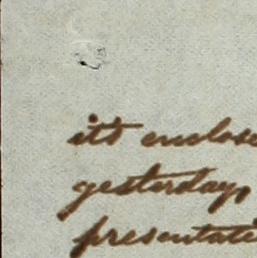 its enclose
yesterday,
presentati